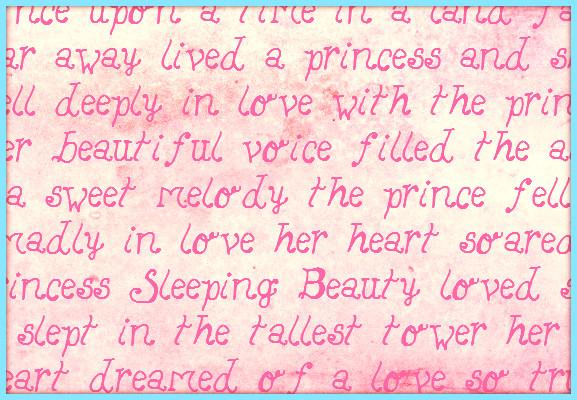 nce upon a time in a land fa
ar away lived a princess and s
ell deeply in love with the prin
er beautiful voice filled the a
a sweet melody the prince fell
madly in love her heart soared
rincess Sleeping Beauty loved s
slept in the tallest tower her
eart dreamed of a love so tru